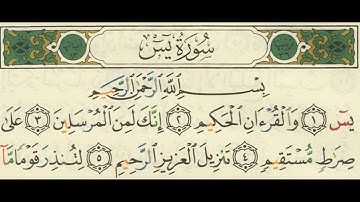 سُورَةُ يسٓ
بِسْمِ ٱللَّهِ ٱلرَّحْمَٰنِ ٱلرَّحِيمِ
يسٓ ١ وَٱلْقُرْءَانِ ٱلْحَكِيمِ ٢ إِنَّكَ لَمِنَ ٱلْمُرْسَلِينَ ٣ عَلَىٰ
صِرَٰطٍ مُّسْتَقِيمٍ ٤ تَنزِيلَ ٱلْعَزِيزِ ٱلرَّحِيمِ ٥ لِتُنذِرَ قَوْمًا مَّآ